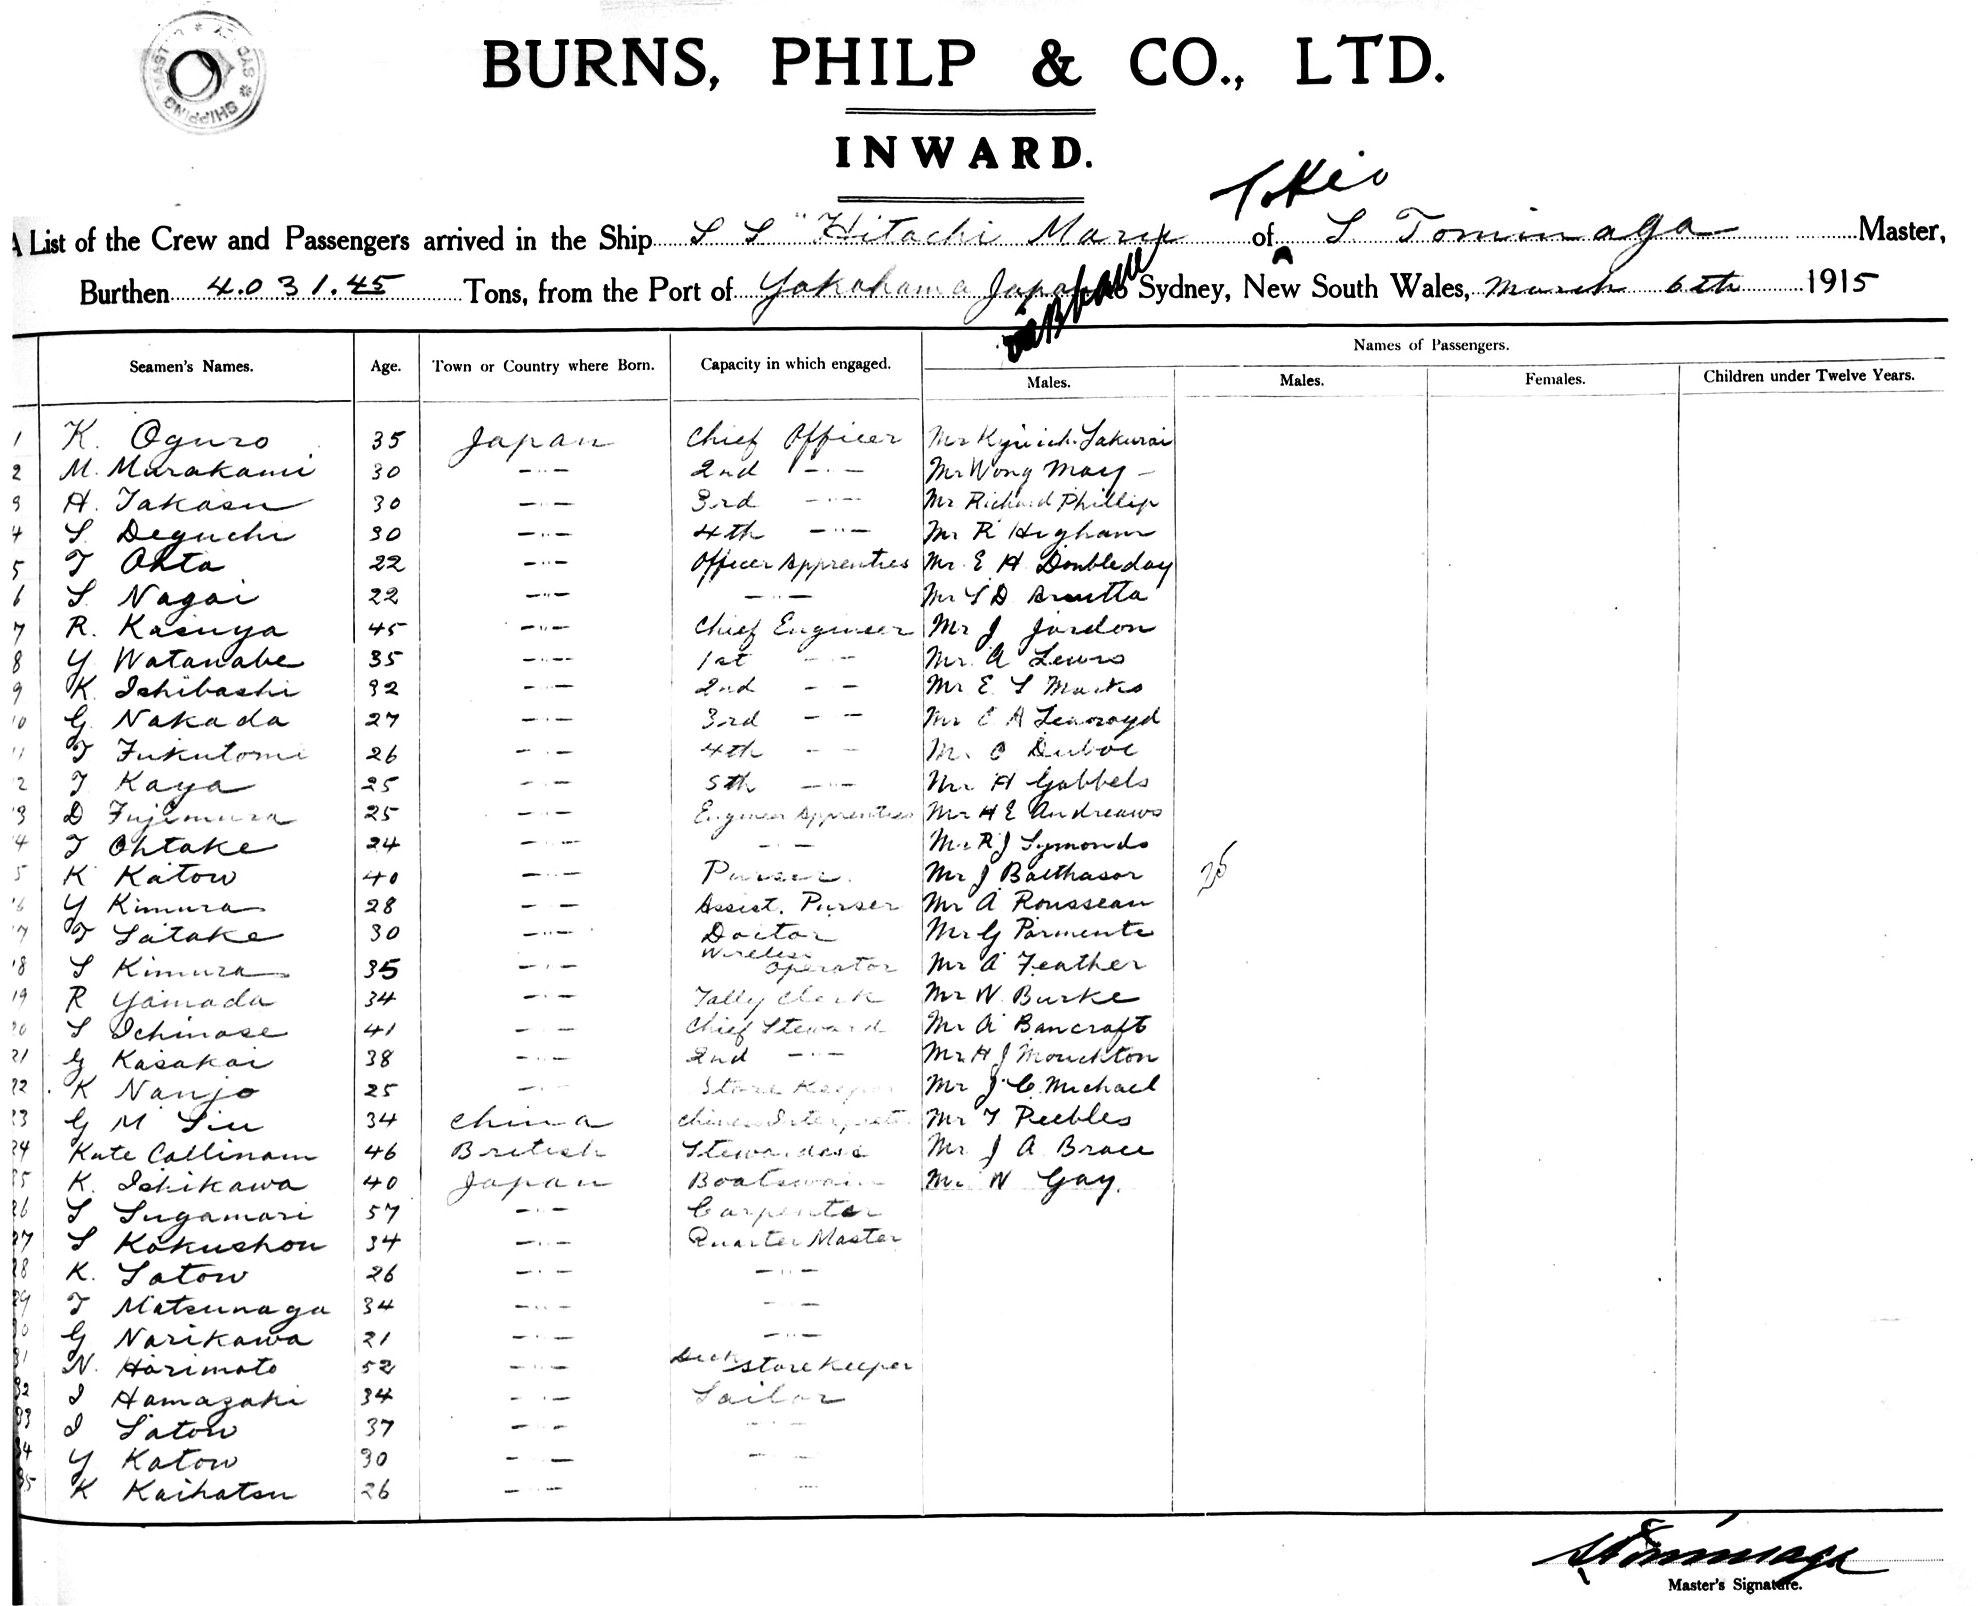 SHIPPING MASTER * SYDNEY *
BURNS, PHILP & CO., LTD.
INWARD.
Tokio
A List of the Crew and Passengers arrived in the Ship S S "Hitachi Maru of S. Tominaga Master,
Burthen 4.031.45 Tons, from the Port of Yokohama Japan to Sydney, New South Wales, March 6th 1915
via Brisbane
Seamen's Names. Age. Town or Country where Born. Capacity in which engaged. Names of Passengers.
Males. Males. Females. Children under Twelve Years.
1 K. Oguro 35 Japan Chief Officer Mr Kyuichi Sakurai
2 M. Murakami 30 -"- 2nd -"- Mr Wong May -
3 H. Takasu 30 -"- 3rd -"- Mr Richard Phillip
4 S. Deguchi 30 -"- 4th -"- Mr R Higham
5 T Ohta 22 -"- Officer Apprenties Mr. E H Doubleday
6 S. Nagai 22 -"- -"- Mr S D
7 R. Kasuya 45 -"- Chief Engineer Mr J Jordon
8 Y Watanabe 35 -"- 1st -"- Mr. A Lewis
9 K. Ishibashi 32 -"- 2nd - - Mr E. S Marks
10 G. Nakada 27 -"- 3rd - - Mr C A Learoyd
11 T Fukutomi 26 -"- 4th - - Mr C Duboc
12 T Kaya 25 -"- 5th -"- Mr H Gabbels
13 D Fujimura 25 -"- Engineer Apprenties Mr H E Andreaws
14 T Ohtake 24 -"- -"- Mr R J Symonds
15 K Katow 40 -"- Purser. Mr J Balthasar 25
16 Y Kimura 28 -"- Assist. Purser Mr A Rousseau
17 T Satake 30 -"- Doctor Mr G Parmente
18 S Kimura 35 -"- Wireless operator Mr A Feather
19 R Yamada 34 -"- Tally Clerk Mr W. Burke
20 S Ichinose 41 -"- Chief Steward Mr A Bancraft
21 G Kasakai 38 -"- 2nd -"- Mr H J Monckton
22 K Nanjo 25 -"- Store Keeper Mr J C. Michael
23 G M Siu 34 China Chinese Interpreter Mr T Peebles
24 Kate Callinam 46 British Stewardess Mr J A Brace
25 K. Ishikawa 40 Japan Boatswain Mr W Gay.
26 S Sugamori 57 -"- Carpenter
27 S Kokushou 34 -"- Quarter Master
28 K. Satow 26 -"- -"-
29 T Matsunaga 34 -"- -"-
30 G Narikawa 21 -"- -"-
31 N. Harimoto 52 -"- Deck store Keeper
32 I Hamazaki 34 -"- Sailor
33 I Satow 37 -"- -"-
34 Y Katow 30 -"- -"-
35 K Kaihatsu 26 -"- -"-
S Tominaga
Master's Signature.